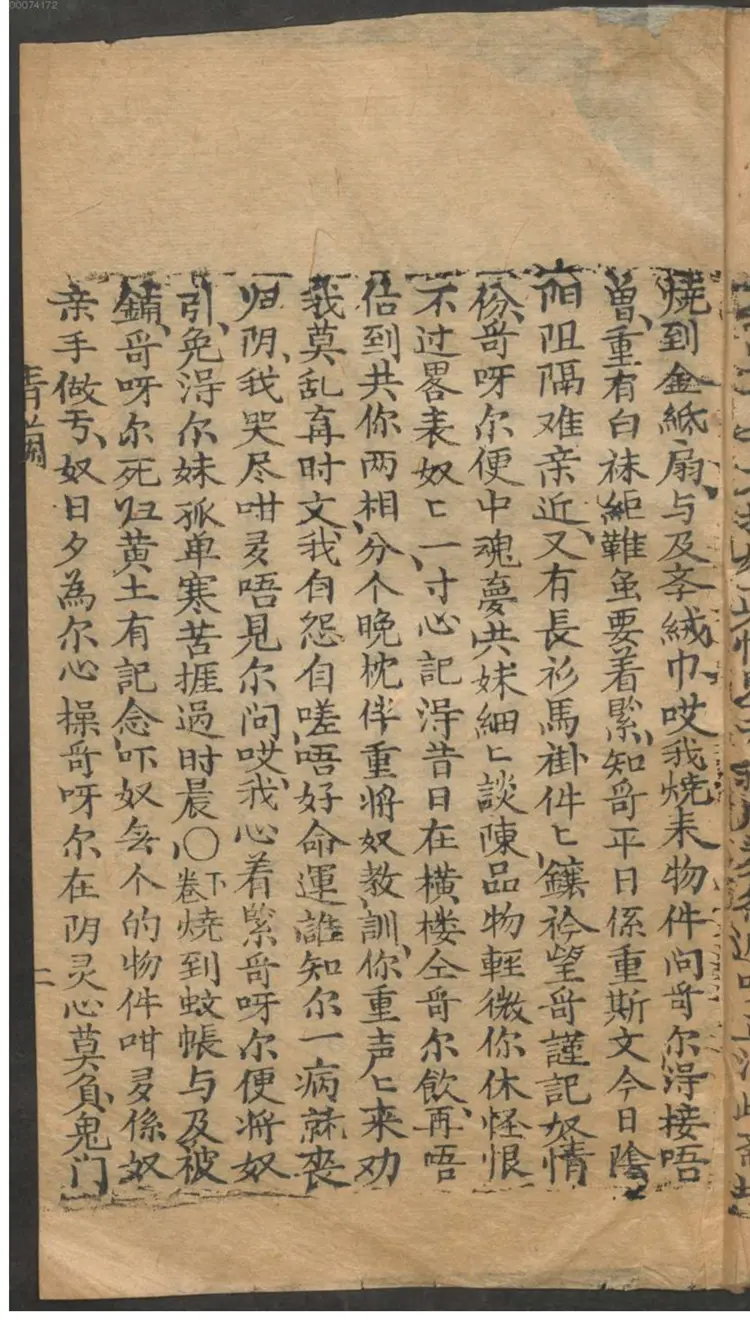 00074172
燒到金紙扇、与及孝絨巾、哎我燒耒物件问哥尔淂接唔
曽、重有白袜䋎鞋虽要着緊、知哥平日係重斯文今日陰
阳阻隔难亲近、又有長衫馬褂件匕、鑲衿望哥謹記奴情
份、哥呀尔便中魂夢、共妹細匕談陳品物輕微你休怪恨
不过畧表奴匕一寸心記淂昔日在横楼仝哥尔飲、再唔
估到共你两相分、个晩枕伴重将奴教訓、你重声匕来劝
我莫乱弃时文、我自怨自嗟、唔好命運誰知尔一病就丧
归阴、我哭尽咁多唔見尔问、哎我心着緊哥呀尔便将奴
引、免淂尔妹孤单寒苦捱過时晨、〇下卷燒到蚊帳与及被
鋪、哥呀尔死归黄土有記念、吓奴每个的物件咁多係奴
亲手做亐、奴日夕為尔心操哥呀尔在阴灵心莫負、鬼门
青蘭 二